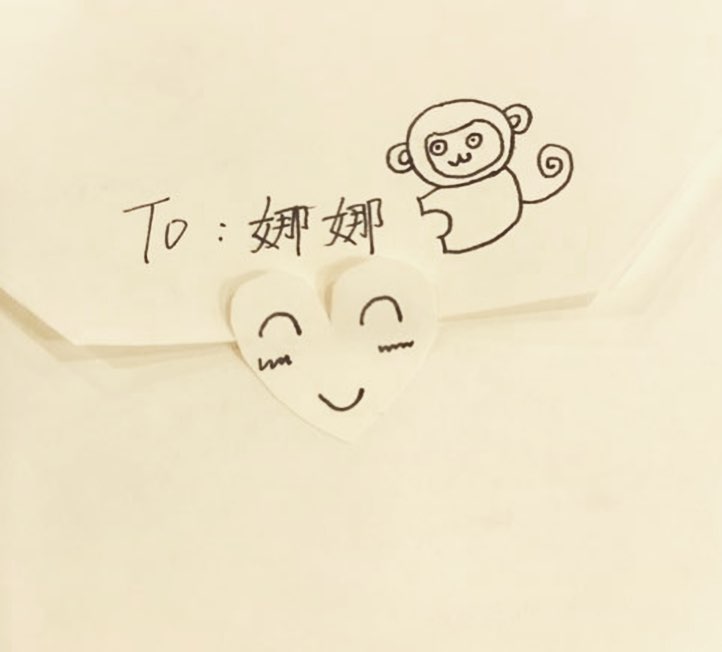 To：娜娜